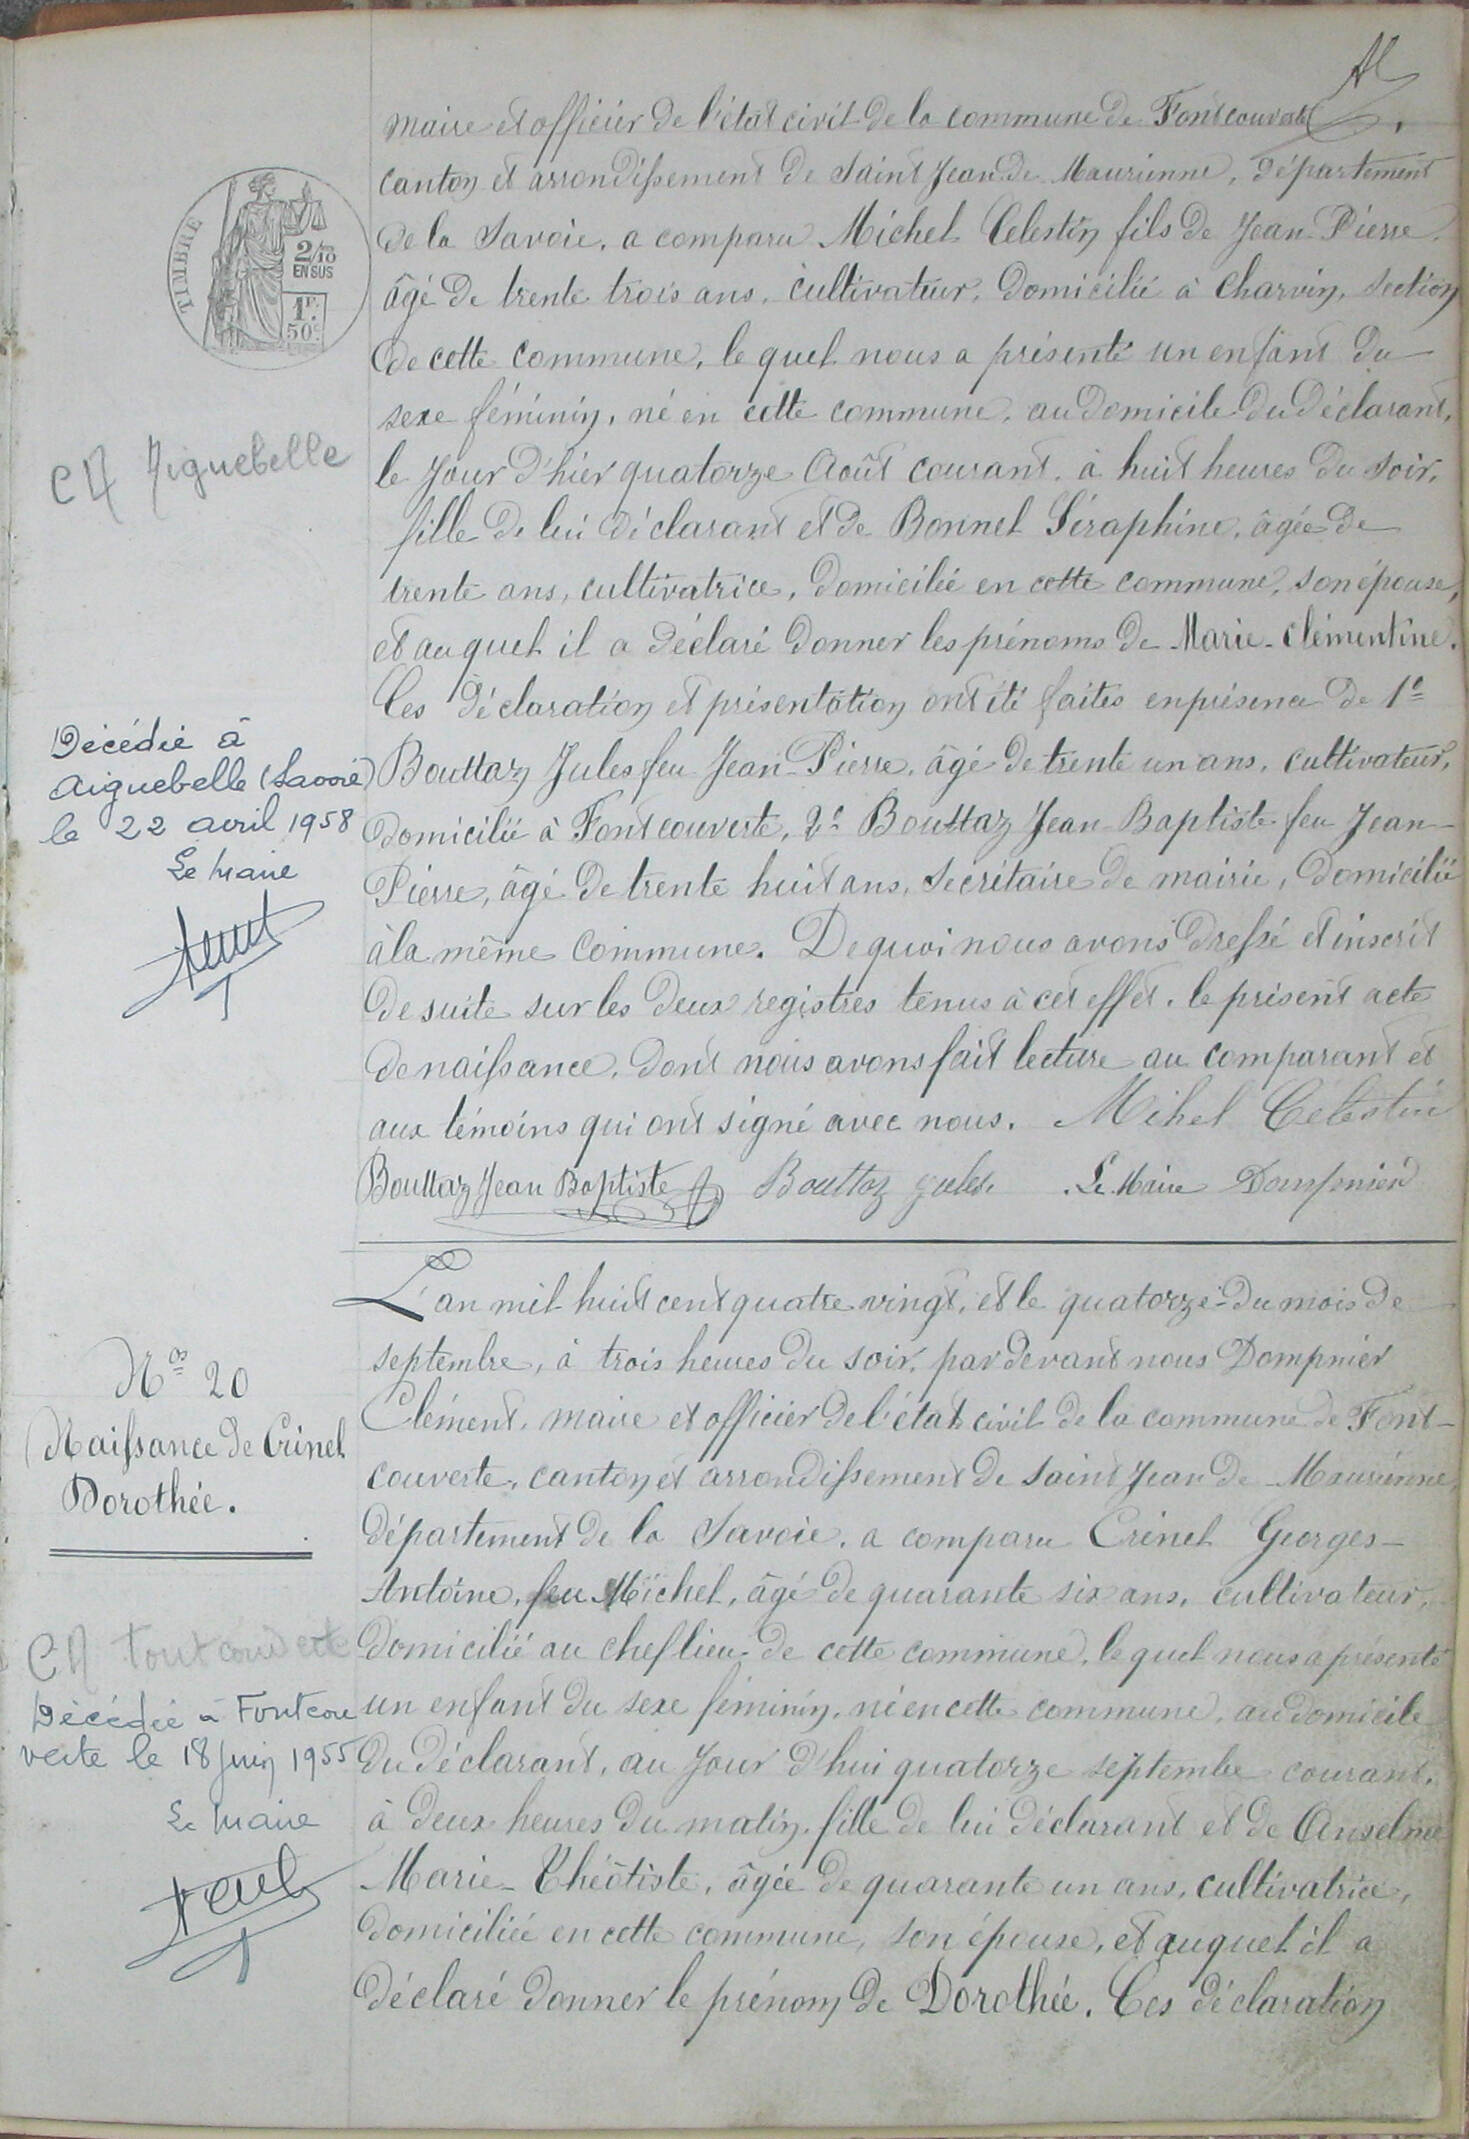 maire et officier de l'état civil de la commune de Fontcouverte
canton et arrondissement de Saint Jean de Maurienne, département
de la Savoie, a comparu Michel Celestin fils de Jean-Pierre
âgé de trente trois ans, cultivateur, domicilié à Charvin, section
de cette commune, le quel nous a présenté un enfant du
sexe féminin, né en cette commune, au domicile du déclarant,
le jour d'hier quatorze Août courant, à huit heures du soir,
fille de lui déclarant et de Bonnel Séraphine, âgée de
trente ans, cultivatrice, domiciliée en cette commune, son épouse,
et auquel il a déclaré donner les prénoms de Marie-Clémentine.
Ces déclaration et présentation ont été faites en présence de 1º
Bouttaz Jules feu Jean-Pierre, âgé de trente un ans, cultivateur,
domicilié à Fontcouverte, 2º Bouttaz Jean-Baptiste feu Jean-
Pierre, âgé de trente huit ans, secrétaire de mairie, domicilié
à la même commune. De quoi nous avons dressé et inscrit
de suite sur les deux registres tenus à cet effet, le présent acte
de naissance, dont nous avons fait lecture au comparant et
aux témoins qui ont signé avec nous. Mihel Célestin
Bouttaz Jean Baptiste Bouttaz jules. Le Maire Dompnier
TIMBRE
2/10
EN SUS
1F.
50c.
CA Aiguebelle
Décédée à
Aiguebelle (Savoie)
le 22 avril 1958
Le Maire
L'an mil huit cent quatre vingt, et le quatorze du mois de
septembre, à trois heures du soir, par devant nous Dompnier
Clément, maire et officier de l'état civil de la commune de Font-
couverte, canton et arrondissement de Saint Jean de Maurienne,
département de la Savoie, a comparu Crinel Georges-
Antoine, feu Michel, âgé de quarante six ans, cultivateur,
domicilié au chef lieu de cette commune, le quel nous a présenté
un enfant du sexe féminin, né en cette commune, au domicile
du déclarant, au jour d'hui quatorze septembre courant,
à deux heures du matin, fille de lui déclarant et de Anselme
Marie-Théotiste, âgée de quarante un ans, cultivatrice,
domiciliée en cette commune, son épouse, et auquel il a
déclaré donner le prénom de Dorothée. Ces déclaration
Nº 20
Naissance de Crinel
Dorothée.
CA Fontcouverte
Décédée à Fontcou
verte le 18 Juin 1955
Le Maire